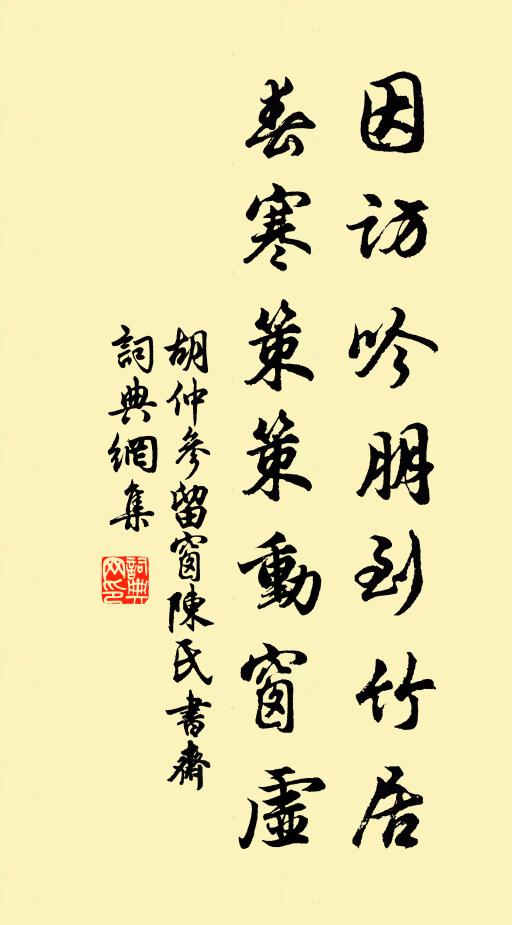 因訪吟朋到竹居
春寒策策動窗虛
胡仲參留窗陳氏書齋
詞典網集
詞典網印